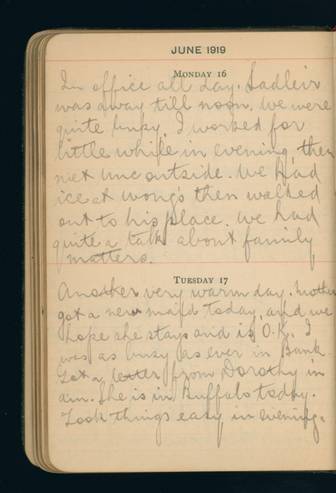 JUNE 1919
MONDAY 16
In office all day. Sadleir
was away till noon. we were
quite busy. I worked for
little while in evening, then
met unc outside. we had
ice at wong's then walked
out to his place. we had
quite a talk about family
matters.
TUESDAY 17
Another very warm day. mother
got a new maid today, and we
hope she stays and is O.K. I
was as busy as ever in Bank
Got a letter from Dorothy in
am. She is in Buffalo today.
Took things easy in evening.